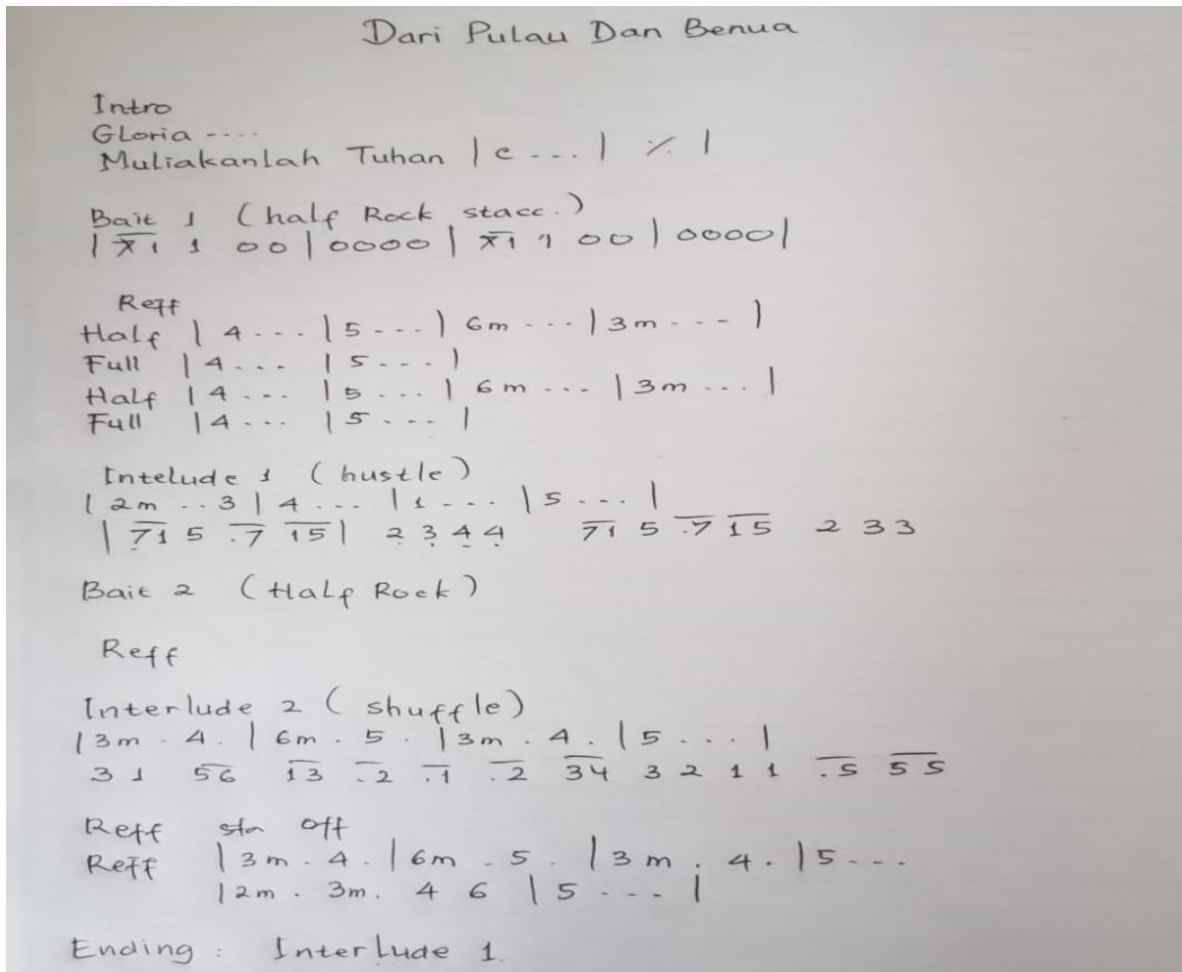 Dari Pulau Dan Benua
Intro
GLoria ----
Muliakanlah Tuhan | c ... | ٪ |
Bait 1 (half Rock stacc.)
| x1 1 00 | 0000 | x1 1 00 | 0000 |
Reff
Half | 4 ... | 5 --- | 6m --- | 3m --- |
Full | 4 ... | 5 ... |
Half | 4 ... | 5 ... | 6m ... | 3m ... |
Full | 4 ... | 5 ... |
Intelude 1 (hustle)
| 2m .. 3 | 4 ... | 1 ... | 5 ... |
| 71 5 .7 15 | 2 3 4 4 71 5 .7 15 2 3 3
Bait 2 (Half Rock)
Reff
Interlude 2 (shuffle)
| 3m . 4 . | 6m . 5 . | 3m . 4 . | 5 ... |
3 1 56 13 .2 .1 .2 34 3 2 1 1 .5 55
Reff off
Reff | 3m . 4 . | 6m . 5 . | 3m . 4 . | 5 ...
| 2m . 3m . 4 6 | 5 ... |
Ending : Interlude 1.